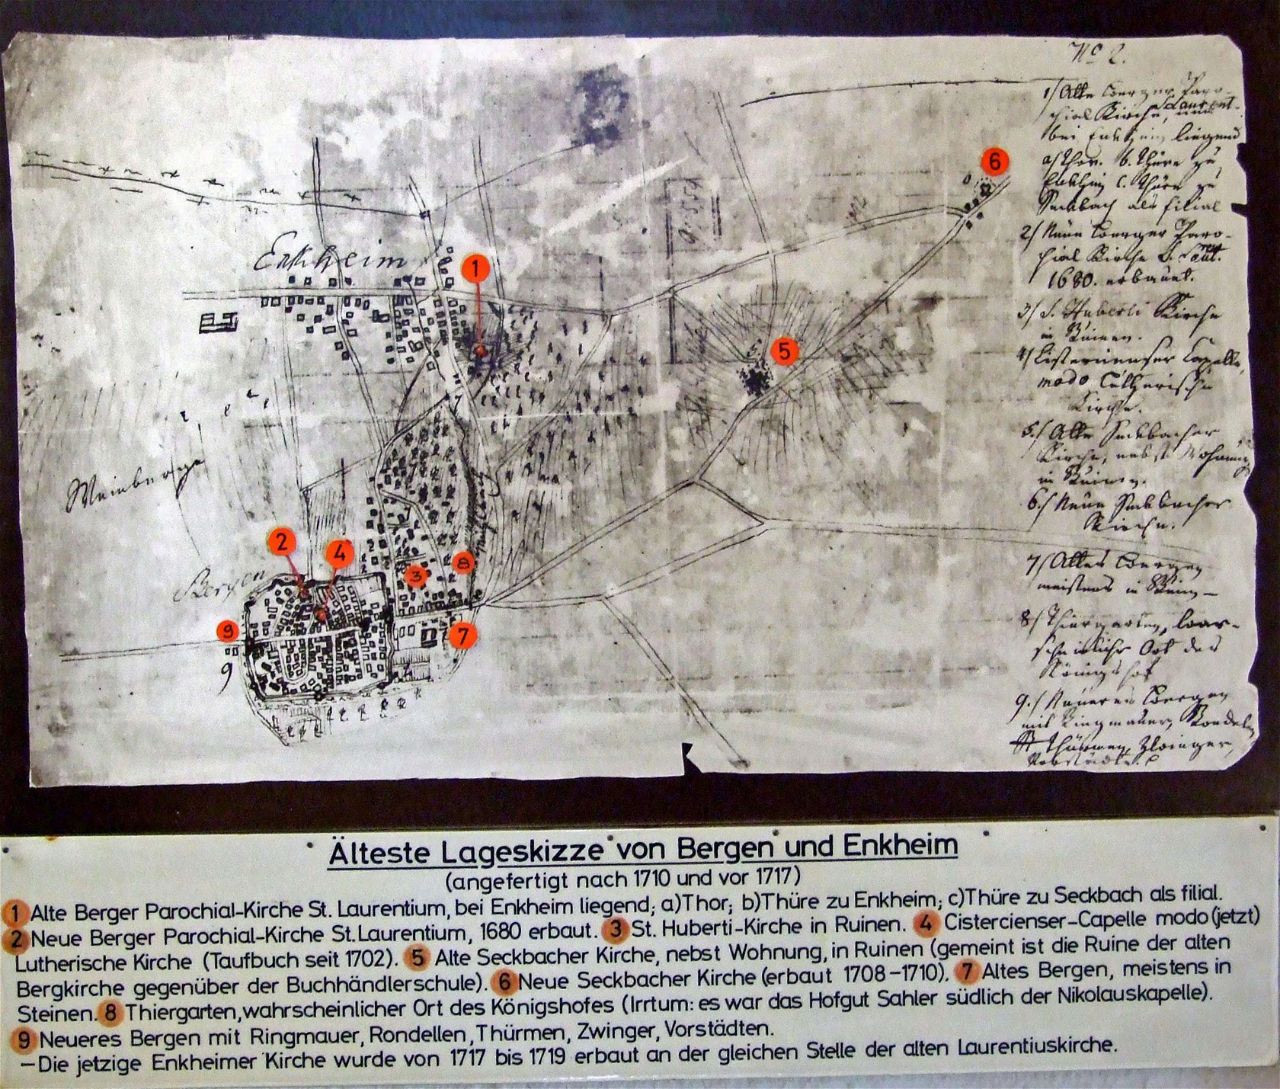 No 2.
1/ Alte Berger Paro-
chial Kirche, Laurent.
bei Enkheim liegend
a/ Thor. b. Thüre zu
Enkheim c. Thüre zu
Seckbach als filial
2/ Neue Berger Paro-
chial Kirche
1680. erbauet.
3/ S. Huberti Kirche
in Ruinen.
4/ Cistercienser Capelle,
modo Lutherische
Kirche.
5./ Alte Seckbacher
Kirche, nebst Wohnung
in Ruinen.
6./ Neue Seckbacher
Kirche.
7/ Altes Bergen
meistens in
8/ Thiergarten, war-
scheinlicher Ort des
Königshof
9./ Neueres Bergen
mit Ringmauer, Rondeln
Thürmen, Zwinger,
Vorstädte.
6
Enkheim
1
5
Weinberge
2
4
Bergen
3
8
9
7
9
Älteste Lageskizze von Bergen und Enkheim
(angefertigt nach 1710 und vor 1717)
1 Alte Berger Parochial-Kirche St. Laurentium, bei Enkheim liegend; a)Thor; b)Thüre zu Enkheim; c)Thüre zu Seckbach als filial.
2 Neue Berger Parochial-Kirche St. Laurentium, 1680 erbaut. 3 St. Huberti-Kirche in Ruinen. 4 Cistercienser-Capelle modo (jetzt)
Lutherische Kirche (Taufbuch seit 1702). 5 Alte Seckbacher Kirche, nebst Wohnung, in Ruinen (gemeint ist die Ruine der alten
Bergkirche gegenüber der Buchhändlerschule). 6 Neue Seckbacher Kirche (erbaut 1708-1710). 7 Altes Bergen, meistens in
Steinen. 8 Thiergarten, wahrscheinlicher Ort des Königshofes (Irrtum: es war das Hofgut Sahler südlich der Nikolauskapelle).
9 Neueres Bergen mit Ringmauer, Rondellen, Thürmen, Zwinger, Vorstädten.
—Die jetzige Enkheimer Kirche wurde von 1717 bis 1719 erbaut an der gleichen Stelle der alten Laurentiuskirche.